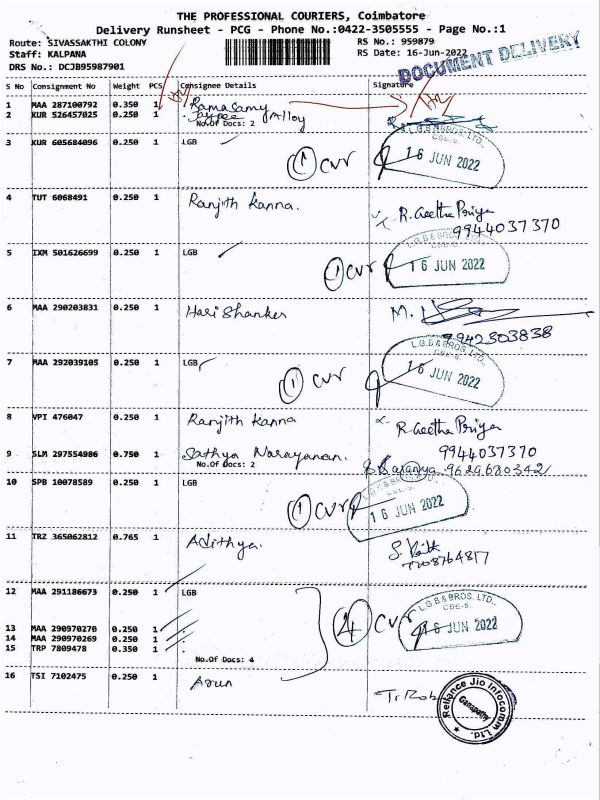 THE PROFESSIONAL COURIERS, Coimbatore
Delivery Runsheet - PCG - Phone No.:0422-3505555 - Page No.:1
Route: SIVASSAKTHI COLONY
Staff: KALPANA
DRS No.: DCJB95987901
RS No.: 959879
RS Date: 16-Jun-2022
DOCUMENT DELIVERY
S No Consignment No Weight PCS Consignee Details Signature
1 MAA 287100792 0.350 1 Ramasamy
2 KUR 526457025 0.250 1 Alloy
No.Of Docs: 2
3 KUR 605684096 0.250 1 LGB 1 CVR
L.G.B & BROS. LTD.,
CBE-6.
16 JUN 2022
4 TUT 6068491 0.250 1 Ranjith Kanna. R. Geetha Priya
9944037370
5 IXM 501626699 0.250 1 LGB 1 CVR
L.G.B & BROS. LTD.,
16 JUN 2022
6 MAA 290203831 0.250 1 Hari Shanker M.
9942303838
7 MAA 292039105 0.250 1 LGB 1 CVR
L.G.B & BROS. LTD.,
CBE-6.
16 JUN 2022
8 VPI 476047 0.250 1 Ranjith Kanna R. Geetha Priya
9944037370
9 SLM 297554986 0.750 1 Sathya Narayanan. Saranya 9629680342
No.Of Docs: 2
10 SPB 10078589 0.250 1 LGB 1 CVR
L.G.B & BROS. LTD.,
16 JUN 2022
11 TRZ 365062812 0.765 1 Adithya.
7708764817
12 MAA 291186673 0.250 1 LGB
13 MAA 290970270 0.250 1
14 MAA 290970269 0.250 1
15 TRP 7809478 0.350 1
No.Of Docs: 4
4 CVR
L.G.B & BROS. LTD.,
CBE-6.
16 JUN 2022
16 TSI 7102475 0.250 1 Arun
Reliance Jio Infocomm Ltd.
Ganapathy